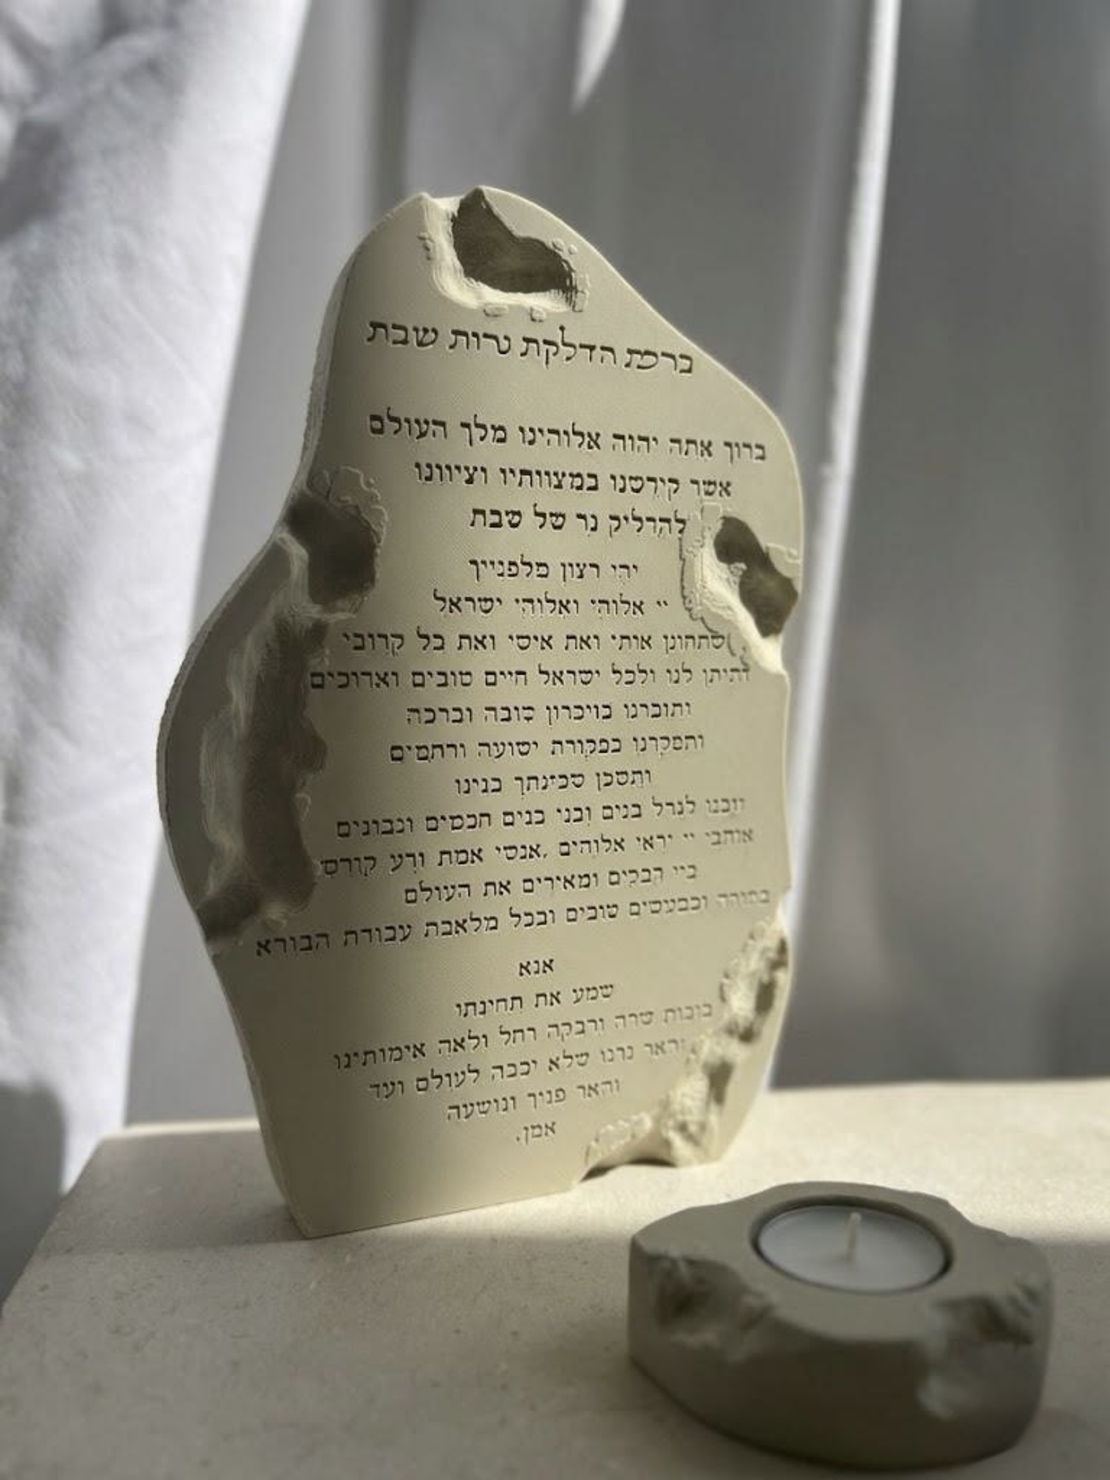 ברכת הדלקת נרות שבת
ברוך אתה יהוה אלוהינו מלך העולם
אשר קידשנו במצוותיו וציוונו
להדליק נר של שבת
יהי רצון מלפנייך
יי אלוהי ואלוהי ישראל
שתחונן אותי ואת אישי ואת כל קרובי
ותיתן לנו ולכל ישראל חיים טובים וארוכים
ותזכרנו בזיכרון טובה וברכה
ותפקדנו בפקודת ישועה ורחמים
ותשכן שכינתך בנינו
וזכנו לגדל בנים ובני בנים חכמים ונבונים
אוהבי יי יראי אלוהים ,אנשי אמת וזרע קודש
ביי דבקים ומאירים את העולם
בתורה ובמעשים טובים ובכל מלאכת עבודת הבורא
אנא
שמע את תחינתו
בזכות שרה ורבקה רחל ולאה אימותינו
והאר נרנו שלא יכבה לעולם ועד
והאר פניך ונושעה
אמן.